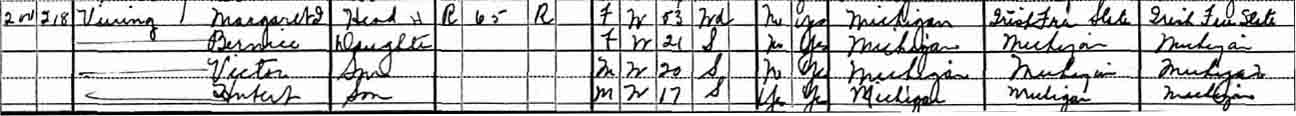 200 218 Vining Margaret I Head H R 65 R F W 53 Wd No Yes Michigan Irish Fre State Irish Free State
Bernice Daughte F W 21 S No Yes Michigan Michigan Michigan
Victor Son M W 20 S No Yes Michigan Michigan Michigan
Hubert Son M W 17 S Yes Yes Michigan Michigan Michigan